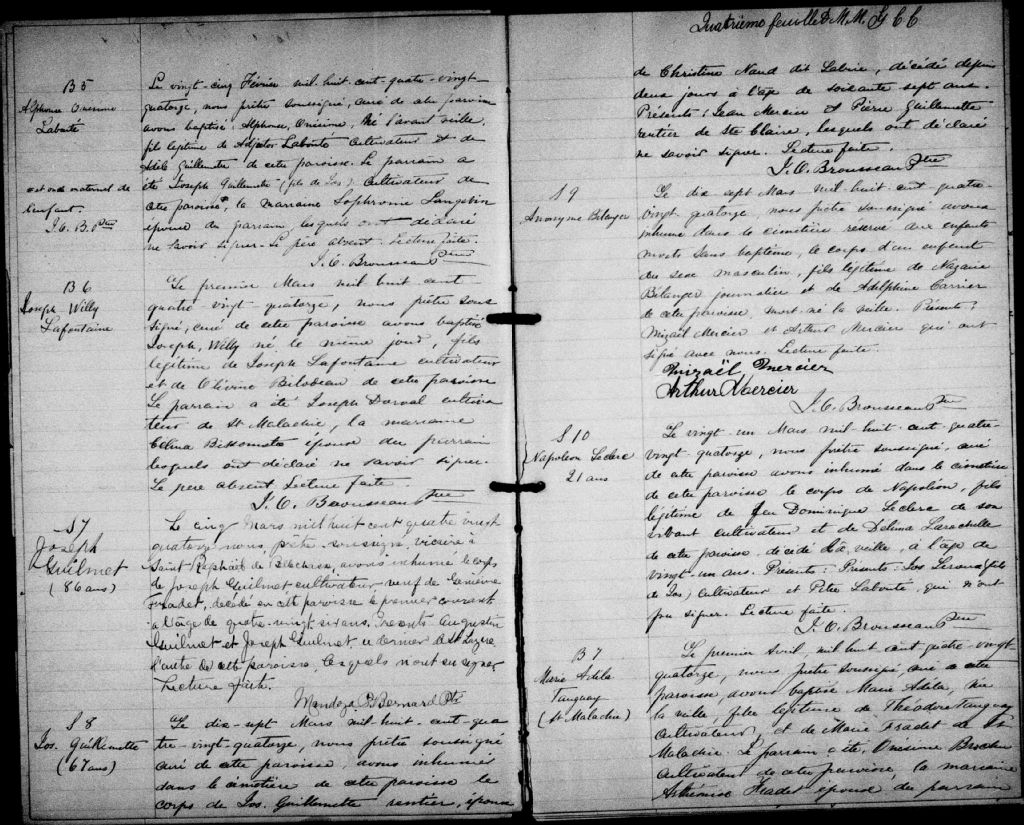 B 5
Alphonse Onesime
Labonté
est onde maternel de
l'enfant.
J. O. B. Ptre
Le vingt-cinq Février mil huit-cent-quatre-vingt-
quatorze, nous prêtre soussigné, curé de cette paroisse
avons baptisé, Alphonse, Onésime, né l'avant veille,
fils légitime de Labonté Cultivateur et de
Adèle Guillemette de cette paroisse. Le parrain a
été Joseph Guillemette (fils de Jos) Cultivateur de
cette paroisse, la marraine Sophronie Langevin
épouse du parrain, lesquels ont déclaré
ne savoir signer. Le père absent. Lecture faite.
J. O. Brousseau Ptre
B 6
Joseph Willy
Lafontaine
Le premier Mars mil huit cent
quatre vingt-quatorze, nous prêtre sous
signé, curé de cette paroisse avons baptisé
Joseph, Willy né le même jour, fils
légitime de Joseph Lafontaine cultivateur
et de Olivine Bilodeau de cette paroisse
Le parrain a été Joseph Dorval cultiva
teur de St Malachie, la marraine
Célina Bissonnette épouse du parrain
lesquels ont déclaré ne savoir signer.
Le père absent Lecture faite.
J. O. Brousseau Ptre
S 7
Joseph
Guilmet
(86 ans)
Le cinq Mars mil huit cent quatre vingt
quatorze nous, prêtre soussigné vicaire à
Saint Raphaël de Bellechasse, avons inhumé le corps
de Joseph Guilmet cultivateur, veuf de Genviève
Fradet, décédé en cette paroisse le premier courant
à l'âge de quatre-vingt-six ans. Présents Augustin
Guilmet et Joseph Guilmet, ce dernier de St Lazare
l'autre de cette paroisse, lesquels n'ont su signer
Lecture faite.
Mendoza P. Bernard Ptre
S 8
Jos. Guillemette
(67 ans)
Le dix-sept Mars mil huit-cent-qua
tre-vingt-quatorze, nous prêtre soussigné
curé de cette paroisse, avons inhumé
dans le cimetière de cette paroisse le
corps de Jos. Guillemette rentier, époux
Quatrième feuillet M. M. G C C
de Christine Naud dit Labrie, décédé depuis
deux jours à l'âge de soixante sept ans.
Présents: Jean Mercier et Pierre Guillemette
rentier de Ste Claire, lesquels ont déclaré
ne savoir signer. Lecture faite.
J. O. Brousseau Ptre
S 9
Anonyme Bélanger
Le dix sept Mars mil-huit-cent-quatre-
vingt quatorze, nous prêtre soussigné avons
inhumé dans le cimetière réservé aux enfants
morts sans baptême, le corps d'un enfant
du sexe masculin, fils légitime de Nazaire
Bélanger journalier et de Adelphine Carrier
de cette paroisse, mort-né la veille. Présents:
Mizaël Mercier et Arthur Mercier qui ont
signé avec nous. Lecture faite.
Mizaël Mercier
Arthur Mercier
J. O. Brousseau Ptre
S 10
Napoléon Leclerc
21 ans
Le vingt-un Mars mil-huit cent quatre-
vingt-quatorze, nous prêtre soussigné, curé
de cette paroisse avons inhumé dans le cimetière
de cette paroisse le corps de Napoléon, fils
légitime de feu Dominique Leclerc de son
vivant cultivateur et de Delima Larochelle
de cette paroisse, décédé la veille, à l'âge de
vingt-un ans. Présents: Présents: Jos (fils
de Jos) Cultivateur et Pitre Labonté, qui n'ont
pu signer. Lecture faite.
J. O. Brousseau Ptre
B 7
Marie Adila
Tanguay
(St Malachie)
Le premier Avril mil huit cent quatre-vingt
quatorze, nous prêtre soussigné, curé de cette
paroisse, avons baptisé Marie Adila, née
la veille, fille légitime de Théodore Tanguay
Cultivateur, et de Marie Fradet de St
Malachie. Le parrain a été, Onésime
Cultivateur de cette paroisse, la marraine
Arthémise Fradet épouse du parrain